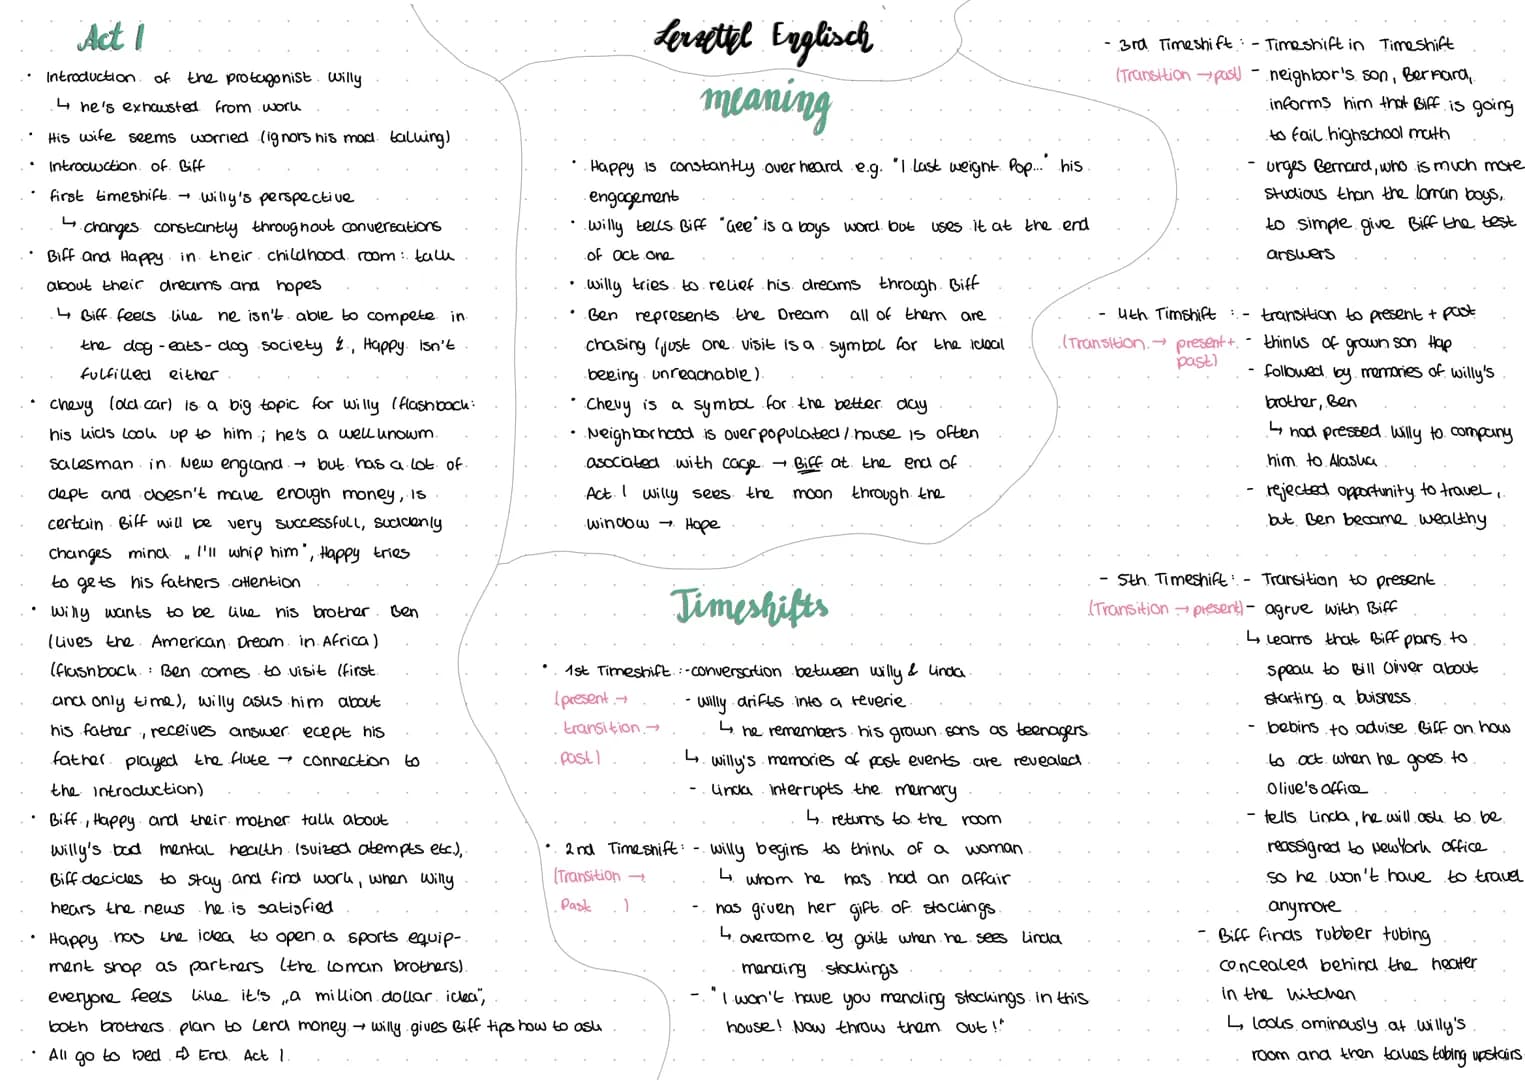 Act 1
· Introduction of the protagonist Willy
↳ he's exhausted from work
· His wife seems worried (ignors his mad talking)
· Introduction of Biff
· first timeshift → Willy's perspective
↳ changes constantly throughout conversations
· Biff and Happy in their childhood room: talk
about their dreams and hopes
↳ Biff feels like he isn't able to compete in
the dog-eats-dog society &, Happy isn't
fulfilled either
· Chevy (old car) is a big topic for Willy (flashback:
his kids look up to him; he's a well unowm
salesman in New england → but has a lot of
dept and doesn't make enough money, is
certain Biff will be very successfull, suddenly
changes mind „I'll whip him", Happy tries
to gets his fathers attention
· Willy wants to be like his brother Ben
(Lives the American Dream in Africa)
(flashback: Ben comes to visit (first
and only time), Willy asks him about
his father, receives answer ecept his
father played the flute → connection to
the introduction)
· Biff, Happy and their mother talk about
Willy's bad mental health (suized atempts etc),
Biff decides to stay and find work, when Willy
hears the news he is satisfied
· Happy has the idea to open a sports equip-
ment shop as partners (the Loman brothers)
everyone feels like it's „a million dollar idea",
both brothers plan to Lend money → Willy gives Biff tips how to ask
· All go to bed ⇨ End Act 1
Lerzettel Englisch
meaning
· Happy is constantly overheard e.g. "I last weight Pop..." his
engagement
· Willy tells Biff "Gee" is a boys word but uses it at the end
of act one
· Willy tries to relief his dreams through Biff
· Ben represents the Dream all of them are
chasing (just one visit is a symbol for the ideal
beeing unreachable)
· Chevy is a symbol for the better day
· Neighborhood is overpopulated/house is often
asociated with cage → Biff at the end of
Act 1 Willy sees the moon through the
window → Hope
Timeshifts
· 1st Timeshift: - conversation between Willy & Linda
(present → - Willy drifts into a reverie
transition → ↳ he remembers his grown sons as teenagers
past) ↳ Willy's memories of past events are revealed
- Linda interrupts the memory
↳ returns to the room
· 2nd Timeshift: - Willy begins to think of a woman
(Transition → ↳ whom he has had an affair
Past) - has given her gift of stockings
↳ overcome by guilt when he sees Linda
mending stockings
- "I won't have you mending stockings in this
house! Now throw them out!"
- 3rd Timeshift: - Timeshift in Timeshift
(Transition → past) - neighbor's son, Bernard,
informs him that Biff is going
to fail highschool math
- urges Bernard, who is much more
studious than the Loman boys,
to simple give Biff the test
answers
- 4th Timshift: - transition to present + past
(Transition → present + - thinks of grown son Hap
past) - followed by memories of Willy's
brother, Ben
↳ had pressed Willy to company
him to Alaska
- rejected opportunity to travel,
but Ben became wealthy
- 5th Timeshift: - Transition to present
(Transition → present) - agrue with Biff
↳ Learns that Biff plans to
speak to Bill Oliver about
starting a buisness
- bebins to advise Biff on how
to act when he goes to
Olive's office
- tells Linda, he will ask to be
reassigned to NewYork office
so he won't have to travel
anymore
- Biff finds rubber tubing
concealed behind the heater
in the kitchen
↳ looks ominously at Willy's
room and then takes tubing upstairs